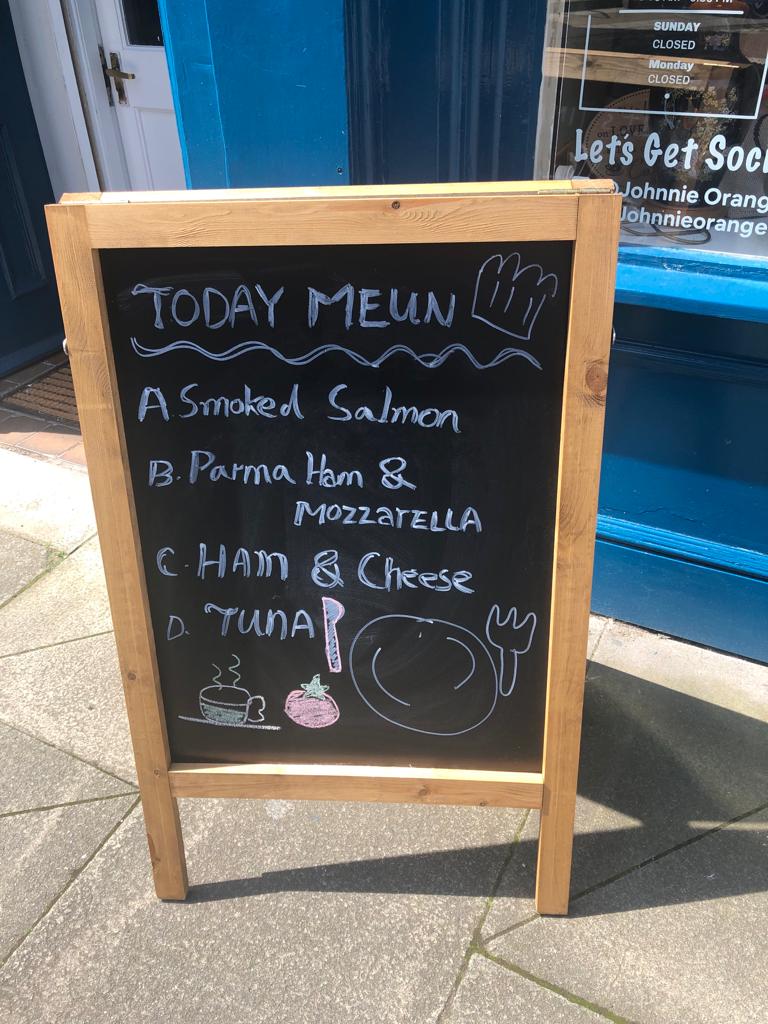 SUNDAY
CLOSED
Monday
CLOSED
Let's Get
Johnnie
TODAY MEUN
A. Smoked Salmon
B. Parma Ham &
MOZZARELLA
C. HAM & Cheese
D. TUNA